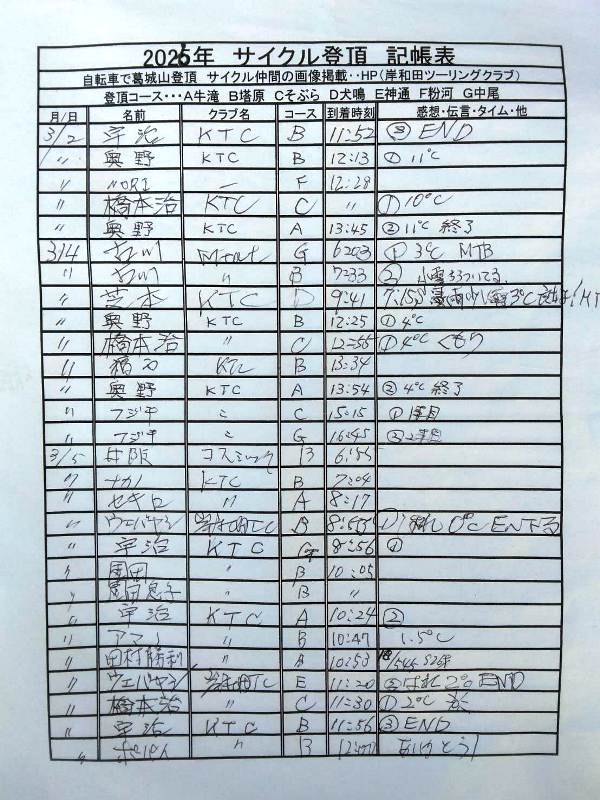 2025年 サイクル登頂 記帳表
自転車で葛城山登頂 サイクル仲間の画像掲載・・HP(岸和田ツーリングクラブ)
登頂コース・・・A牛滝 B塔原 Cそぶら D犬鳴 E神通 F粉河 G中尾
月/日 名前 クラブ名 コース 到着時刻 感想・伝言・タイム・他
3/2 宇治 KTC B 11:52 ② END
〃 奥野 KTC B 12:13 ① 11℃
〃 NORI ー F 12:28
〃 橋本治 KTC C 〃 ① 10℃
〃 奥野 KTC A 13:45 ② 11℃ 終了
3/4 G ① 3℃ MTB
〃 〃 B 7:33 ②
〃 芝本 KTC D 9:41
〃 奥野 KTC B 12:25 ① 4℃
〃 橋本治 〃 C 12:55 ① 4℃ くもり
〃 KTC B 13:34
〃 奥野 KTC A 13:54 ② 4℃ 終了
〃 フジキ 〃 C 15:15 ①
〃 フジキ 〃 G 16:45 ②
3/5 井阪 コスミック B 6:55
〃 ナカノ KTC B 7:04
〃 セキロ 〃 A 8:17
〃 ウエバヤシ B ① 0℃
〃 宇治 KTC G 8:56 ①
〃 園田 〃 B 10:05
〃 園田息子 B 〃
〃 宇治 KTC A 10:24 ②
〃 アマノ 〃 B 10:47 1.5℃
〃 田村勝利 〃 A 10:53
〃 ウエバヤシ E 11:20 ② はれ 2℃ END
〃 橋本治 〃 C 11:30 ① 2℃
〃 宇治 KTC B 11:56 ③ END
〃 ポパイ 〃 B ありがとう!